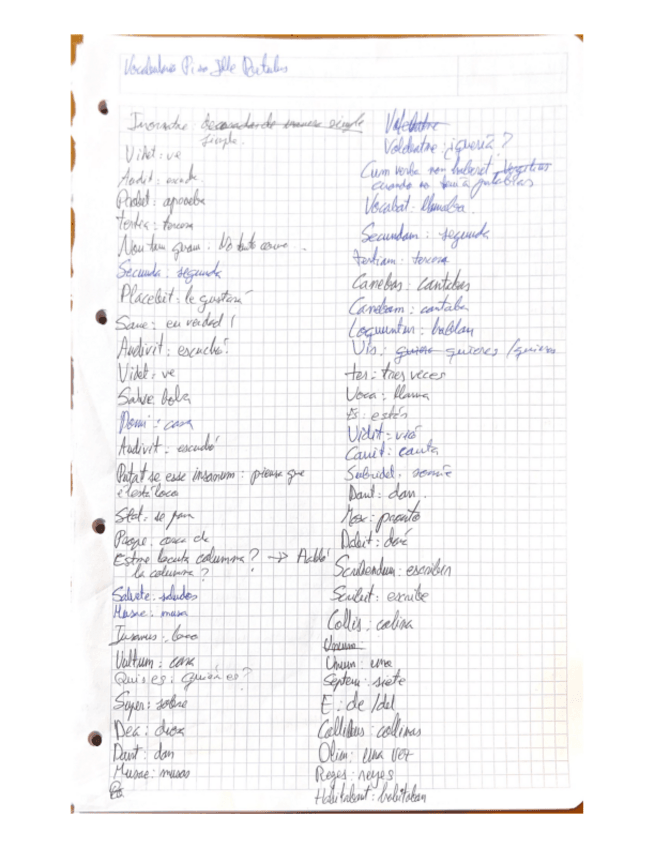 Vocabulario Piso Ille Poetulus
simple.
Videt: ve
Audit: escucha
Probat: aprueba
tertia: tercera
Non tam quam: No tanto como
Secunda: segunda
Placebit: le gustará
Sane: en verdad!
Audivit: escuchó!
Videt: ve
Salve: hola
Domi: casa
Audivit: escuchó
Putat se esse insanum: piensa que
él está loco
Stat: se para
Prope: cerca de
Estne locuta columna? → Habló
la columna?
Salvete: saludos
Musae: musa
Insanus: loco
Vultum: cara
Quis es: quién es?
Super: sobre
Dea: diosa
Dant: dan
Musae: musas
Volebatne
Volebatne: ¿quería?
Cum verba non haberet
cuando no tenía palabras
Vocabat: llamaba
Secundam: segunda
tertiam: tercera
Canebas: cantabas
Canebam: cantaba
Loquuntur: hablan
Vis: quieres / quieras
ter: tres veces
Voca: llama
Es: estás
Vidit: vió
Canit: canta
Subridet: sonríe
Dant: dan.
Mox: pronto
Dabit: dará
Scribendum: escribir
Scribit: escribe
Collis: colina
Unum: una
Septem: siete
E: de / del
Collibus: collinas
Olim: una vez
Reges: reyes
Habitabant: habitaban